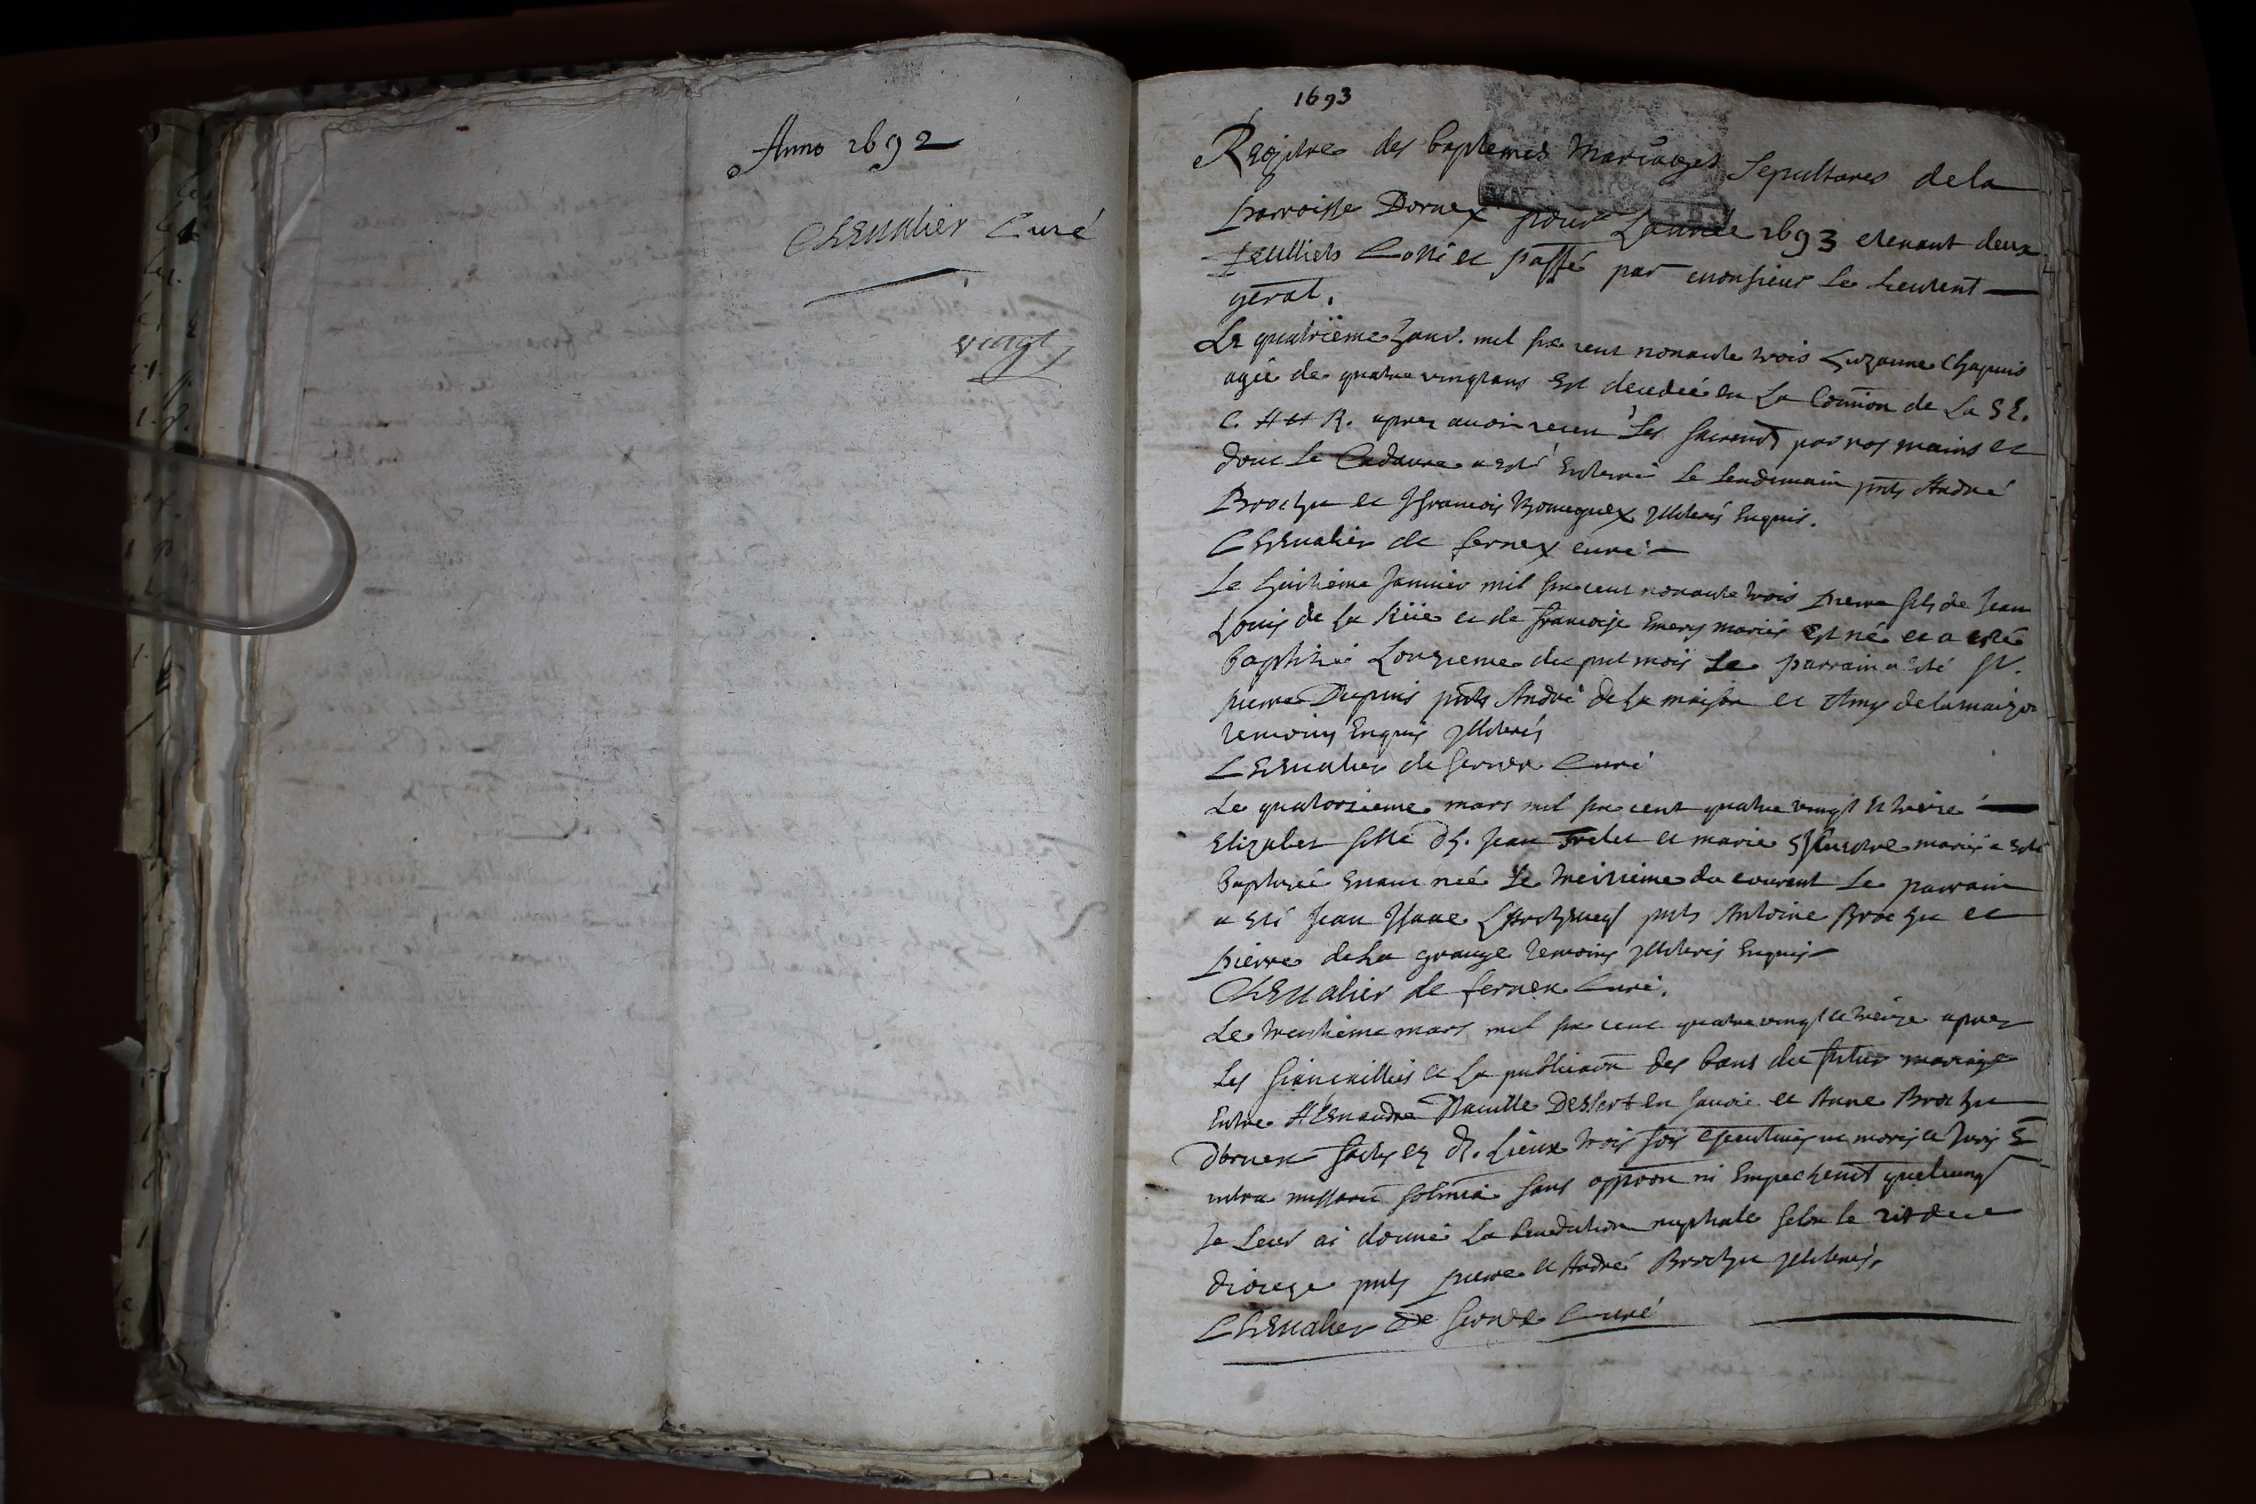 Anno 1692
Chevalier Curé
vingt
1693
Registre des baptemes Mariages Sepultures de la
parroisse Dornex pour Lannée 1693 contenant deux
feulliets Cotté et paffé par monsieur Le Lieutent
geral.
Le quatrieme Janv. mil six cent nonante trois Suzanne Chapuis
agée de quatre vingt ans Est decedée en La Comion de La S E.
C. A et R. apres avoir receu Les sacremts par nos mains et
dont Le Cadavre a esté Enterré Le Lendemain pnts André
Brochu et françois illiterés Enquis.
Chevalier de fernex curé
Le huitieme Janvier mil six cent nonante trois pierre fils de Jean
Louis de la Rüe et de françoise Emery mariés Est né et a esté
baptisé Lonzieme du pnt mois Le parrain a esté Sr.
pierre Dupuis pnts André de la maison et Amy de la maison
temoins Enquis illiterés
Chevalier de fernex Curé
Le quatorzieme mars mil six cent quatre vingt et treize
Elizabet fille d'h. Jean et marie mariés a esté
baptizée Etant née Le treizieme du courant Le parrain
a esté Jean pnts Antoine Brochu et
pierre de La grange temoins illiterés Enquis
Chevalier de fernex Curé.
Le mars mil six cent quatre vingt et treize apres
Les fiancailles et La publicaon des bans du futur mariage
Entre Alexandre en savoie et Anne Brochu
d'ornex faits es ds. Lieux trois fois
intra missarū solmia sans oppoon ni Empechemt quelconq
Je Leur ai donné La benediction nuptiale selon le rit de ce
dioceze pnts pierre et André Brochu illiterés.
Chevalier de fernex Curé